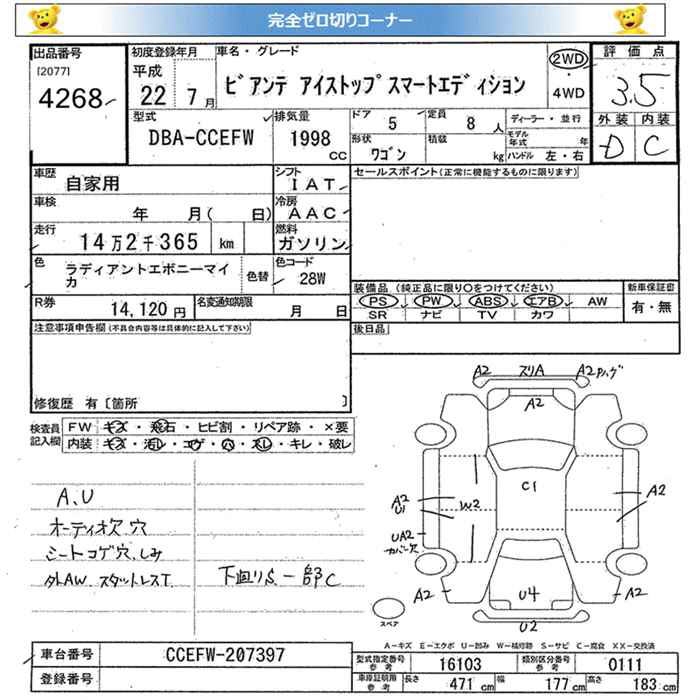 完全ゼロ切りコーナー
出品番号 初度登録年月 車名・グレード 評価点
[2077] 平成 2WD
4268 22 7月 ビアンテ アイストップスマートエディション 4WD 3.5
型式 排気量 ドア 5 定員 8人 ディーラー・並行 外装 内装
DBA-CCEFW 1998 CC 形状 ワゴン 積載 kg モデル年式 年 D C
ハンドル 左・右
車歴 自家用 シフト IAT セールスポイント(正常に機能するものに限ります)
車検 年 月( 日) 冷房 AAC
走行 14万2千365 km 燃料 ガソリン
色 ラディアントエボニーマイカ 色替 色コード 28W
装備品 (純正品に限り○をつけてください) 新車保証書
PS PW ABS エアB AW 有・無
SR ナビ TV カワ
R券 14,120円 名変通知期限 月 日
注意事項申告欄(不具合内容等は具体的に記入して下さい) 後日品
修復歴 有〔箇所 〕
検査員記入欄 FW キズ・飛石・ヒビ割・リペア跡・×要
内装 キズ・汚レ・コゲ・穴・スレ・キレ・破レ
A.U
オーディオ欠 穴
シートコゲ穴.しみ
外AW.スタットレスT. 下回りS.一部C
A2 スリA A2 ハゲ
A2
C1
A2 U1 W2 A2
UA2 カバー欠
A2 U4 A2
U2
スペア
A-キズ E-エクボ U-凹み W-補修跡 S-サビ C-腐食 XX-交換済
車台番号 CCEFW-207397
登録番号
型式指定番号 参考 16103 類別区分番号 参考 0111
車庫証明用 参考 長さ 471cm 幅 177cm 高さ 183cm